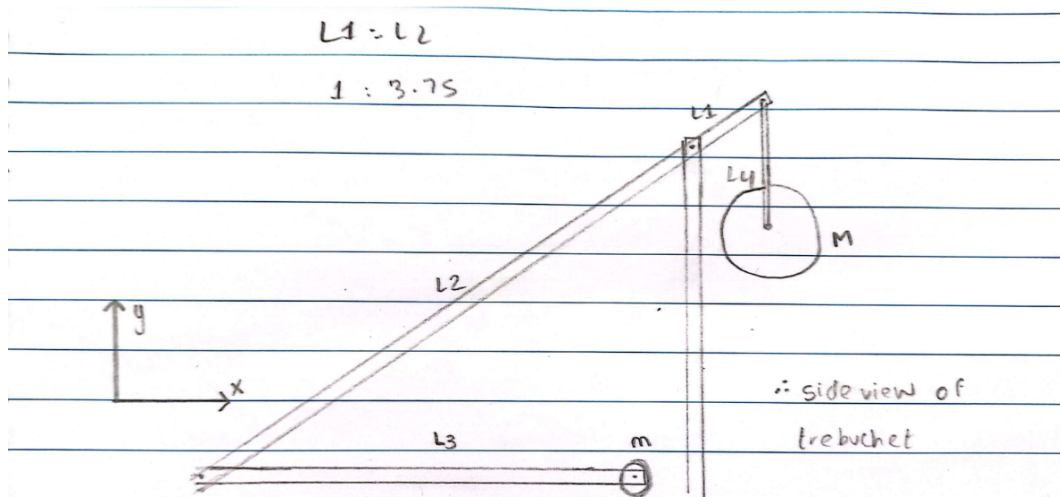 L1 = L2
1 : 3.75
L1
L4
M
L2
y
x
∴ side view of
trebuchet
L3
m